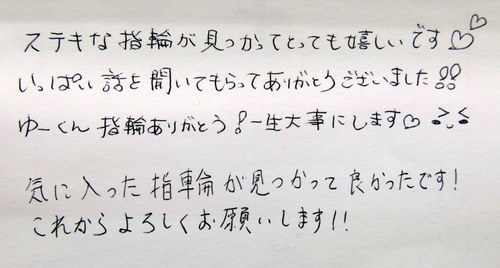 ステキな指輪が見つかってとっても嬉しいです♡♡
いっぱい話を聞いてもらってありがとうございました!!
ゆーくん指輪ありがとう!一生大事にします♡
気に入った指輪が見つかって良かったです!
これからよろしくお願いします!!